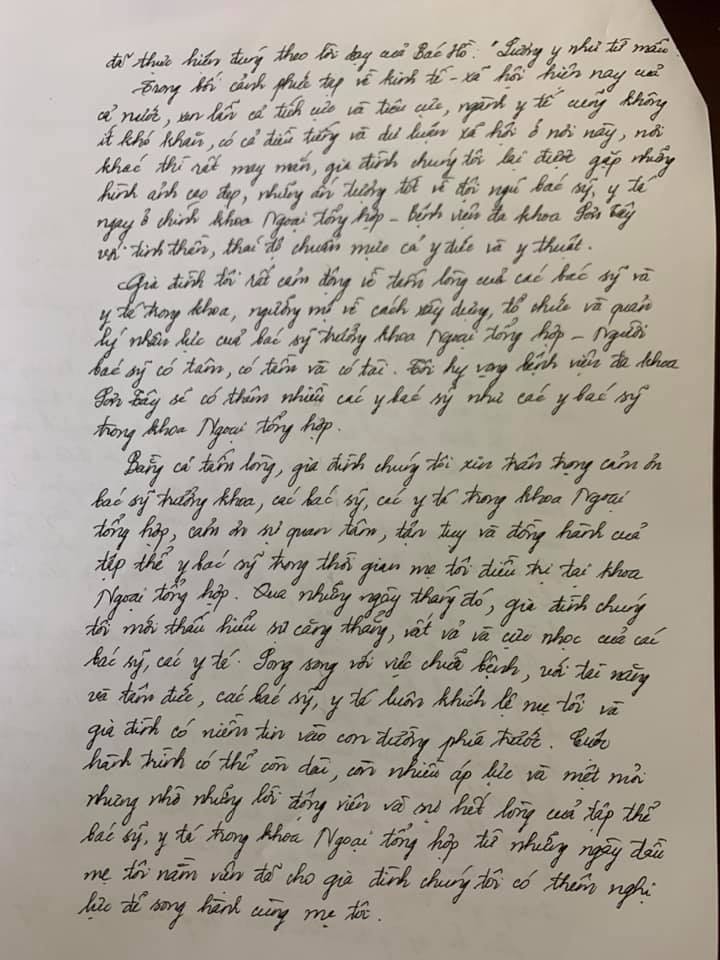 đã thực hiện đúng theo lời dạy của Bác Hồ: "Lương y như từ mẫu
Trong bối cảnh phức tạp về kinh tế - xã hội hiện nay của
cả nước, xen lẫn cả tích cực và tiêu cực, ngành y tế cũng không
ít khó khăn, có cả điều tiếng và dư luận xã hội ở nơi này, nơi
khác thì rất may mắn, gia đình chúng tôi lại được gặp những
hình ảnh cao đẹp, những ấn tượng tốt về đội ngũ bác sỹ, y tá
ngay ở chính khoa Ngoại tổng hợp - Bệnh viện đa khoa Sơn Tây
với tinh thần, thái độ chuẩn mực cả y đức và y thuật.
Gia đình tôi rất cảm động về tấm lòng của các bác sỹ và
y tá trong khoa, ngưỡng mộ về cách xây dựng, tổ chức và quản
lý nhân lực của bác sỹ trưởng khoa Ngoại tổng hợp - Người
bác sỹ có tâm, có tầm và có tài. Tôi hy vọng bệnh viện đa khoa
Sơn Tây sẽ có thêm nhiều các y bác sỹ như các y bác sỹ
trong khoa Ngoại tổng hợp.
Bằng cả tấm lòng, gia đình chúng tôi xin trân trọng cảm ơn
bác sỹ trưởng khoa, các bác sỹ, các y tá trong khoa Ngoại
tổng hợp, cảm ơn sự quan tâm, tận tuỵ và đồng hành của
tập thể y bác sỹ trong thời gian mẹ tôi điều trị tại khoa
Ngoại tổng hợp. Qua những ngày tháng đó, gia đình chúng
tôi mới thấu hiểu sự căng thẳng, vất vả và cực nhọc của các
bác sỹ, các y tá. Song song với việc chữa bệnh, với tài năng
và tâm đức, các bác sỹ, y tá luôn khích lệ mẹ tôi và
gia đình có niềm tin vào con đường phía trước. Cuộc
hành trình có thể còn dài, còn nhiều áp lực và mệt mỏi
nhưng nhờ những lời động viên và sự hết lòng của tập thể
bác sỹ, y tá trong khoa Ngoại tổng hợp từ những ngày đầu
mẹ tôi nằm viện đã cho gia đình chúng tôi có thêm nghị
lực để song hành cùng mẹ tôi.